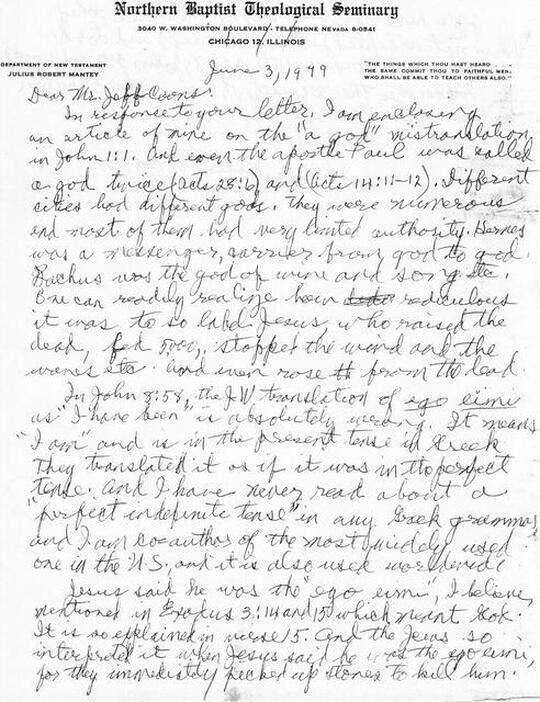 Northern Baptist Theological Seminary
3040 W. WASHINGTON BOULEVARD - TELEPHONE NEVADA 8-0541
CHICAGO 12, ILLINOIS
DEPARTMENT OF NEW TESTAMENT
JULIUS ROBERT MANTEY
"THE THINGS WHICH THOU HAST HEARD . . .
THE SAME COMMIT THOU TO FAITHFUL MEN,
WHO SHALL BE ABLE TO TEACH OTHERS ALSO."
June 3, 1979
Dear Mr. Jeff Coons:
In response to your letter, I am enclosing
an article of mine on the "a god" mistranslation
in John 1:1. And even the apostle Paul was called
a god twice (Acts 28:6) and (Acts 14:11-12). Different
cities had different gods. They were numerous
and most of them had very limited authority. Hermes
was a messenger, carrier from god to god.
Bachus was the god of wine and song etc.
One can readily realize how rediculous
it was to so label Jesus, who raised the
dead, fed 5,000, stopped the wind and the
waves etc and even rose from the dead.
In John 8:58, the J.W translation of ego eimi
as "I have been" is absolutely wrong. It means
"I am" and is in the present tense in Greek
They translated it as if it was in the perfect
tense. And I have never read about a
"perfect indefinite tense" in any Greek grammar,
and I am co-author of the most widely used
one in the U.S. and it is also used worldwide.
Jesus said he was the "ego eimi", I believe,
mentioned in Exodus 3:14 and 15 which meant God.
It is so explained in verse 15. And the Jews so
interpreted it when Jesus said he was the ego eimi,
for they immediately picked up stones to kill him.